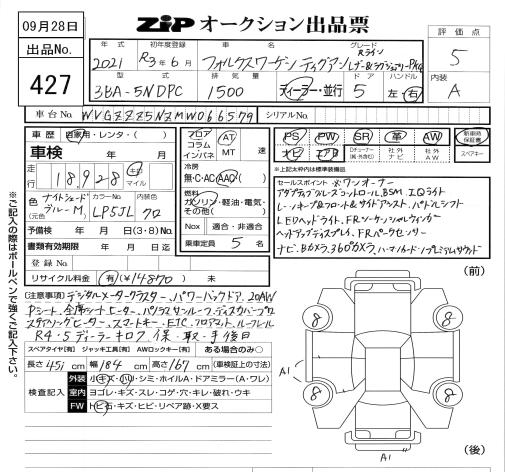 09月28日
出品No.
427
ZIP オークション出品票
評価点
5
内装
A
年式 初年度登録 車名 グレード
2021 R3年6月 フォルクスワーゲン ティグアン Rライン
型式 排気量 ドア ハンドル
3BA-5NDPC 1500 ディーラー・並行 5 左・右
車台No. WVGZZZ5NZMW066579 シリアルNo.
車歴 自家用・レンタ・( )
フロア コラム インパネ AT MT 速
PS PW SR 革 AW 新車時保証書
ナビ エアB Dチューナー(純・外含む) 社外ナビ 社外AW スペアキー
※上記太枠内は標準装備品
車検 年 月
走行 18,928 キロ マイル
冷房
無・C・AC・AAC・( )
色 (元色) ナイトシェードブルーM カラーNo. LP5JL 内装色 クロ
燃料
ガソリン・軽油・電気・その他( )
名義変更期限 年 月 日(3・8)No.
Nox 適合・非適合
書類有効期限 年 月 日迄
乗車定員 5 名
登録No.
リサイクル料金 有(¥14870) 未
セールスポイント ※ワンオーナー
アダプティブクルーズコントロール, BSM, エロライト
レーンキープ&フロント&サイドアシスト, パドルシフト
LEDヘッドライト, FRシーケンシャルウィンカー
ヘッドアップディスプレイ, FRパークセンサー
ナビ, Bカメラ, 360°カメラ, ハーマンカードンプレミアムサウンド
[注意事項] デジタルメータークラスター, パワーバックドア, 20AW
Pシート, 全席シートヒーター, パノラマサンルーフ, ディスカバープロ
ステアリングヒーター, スマートキー, ETC, フロアマット, ルーフレール
R4・5ディーラーキロク, 保・取・手後日
スペアタイヤ[有] ジャッキ工具[有] AWロックキー[有] ある場合のみ○
長さ 451 cm 幅 184 cm 高さ 167 cm (車検証上の寸法)
検査記入
外装 小キズ・小凹・シミ・ホイルA・ドアミラー(A・ワレ)
室内 ヨゴレ・キズ・スレ・コゲ・穴・キレ・破れ・ウキ
FW トビ石・キズ・ヒビ・リペア跡・X要ス
(前)
8 8
A1
8 8
A1
(後)
※ご記入の際はボールペンで強くご記入下さい。